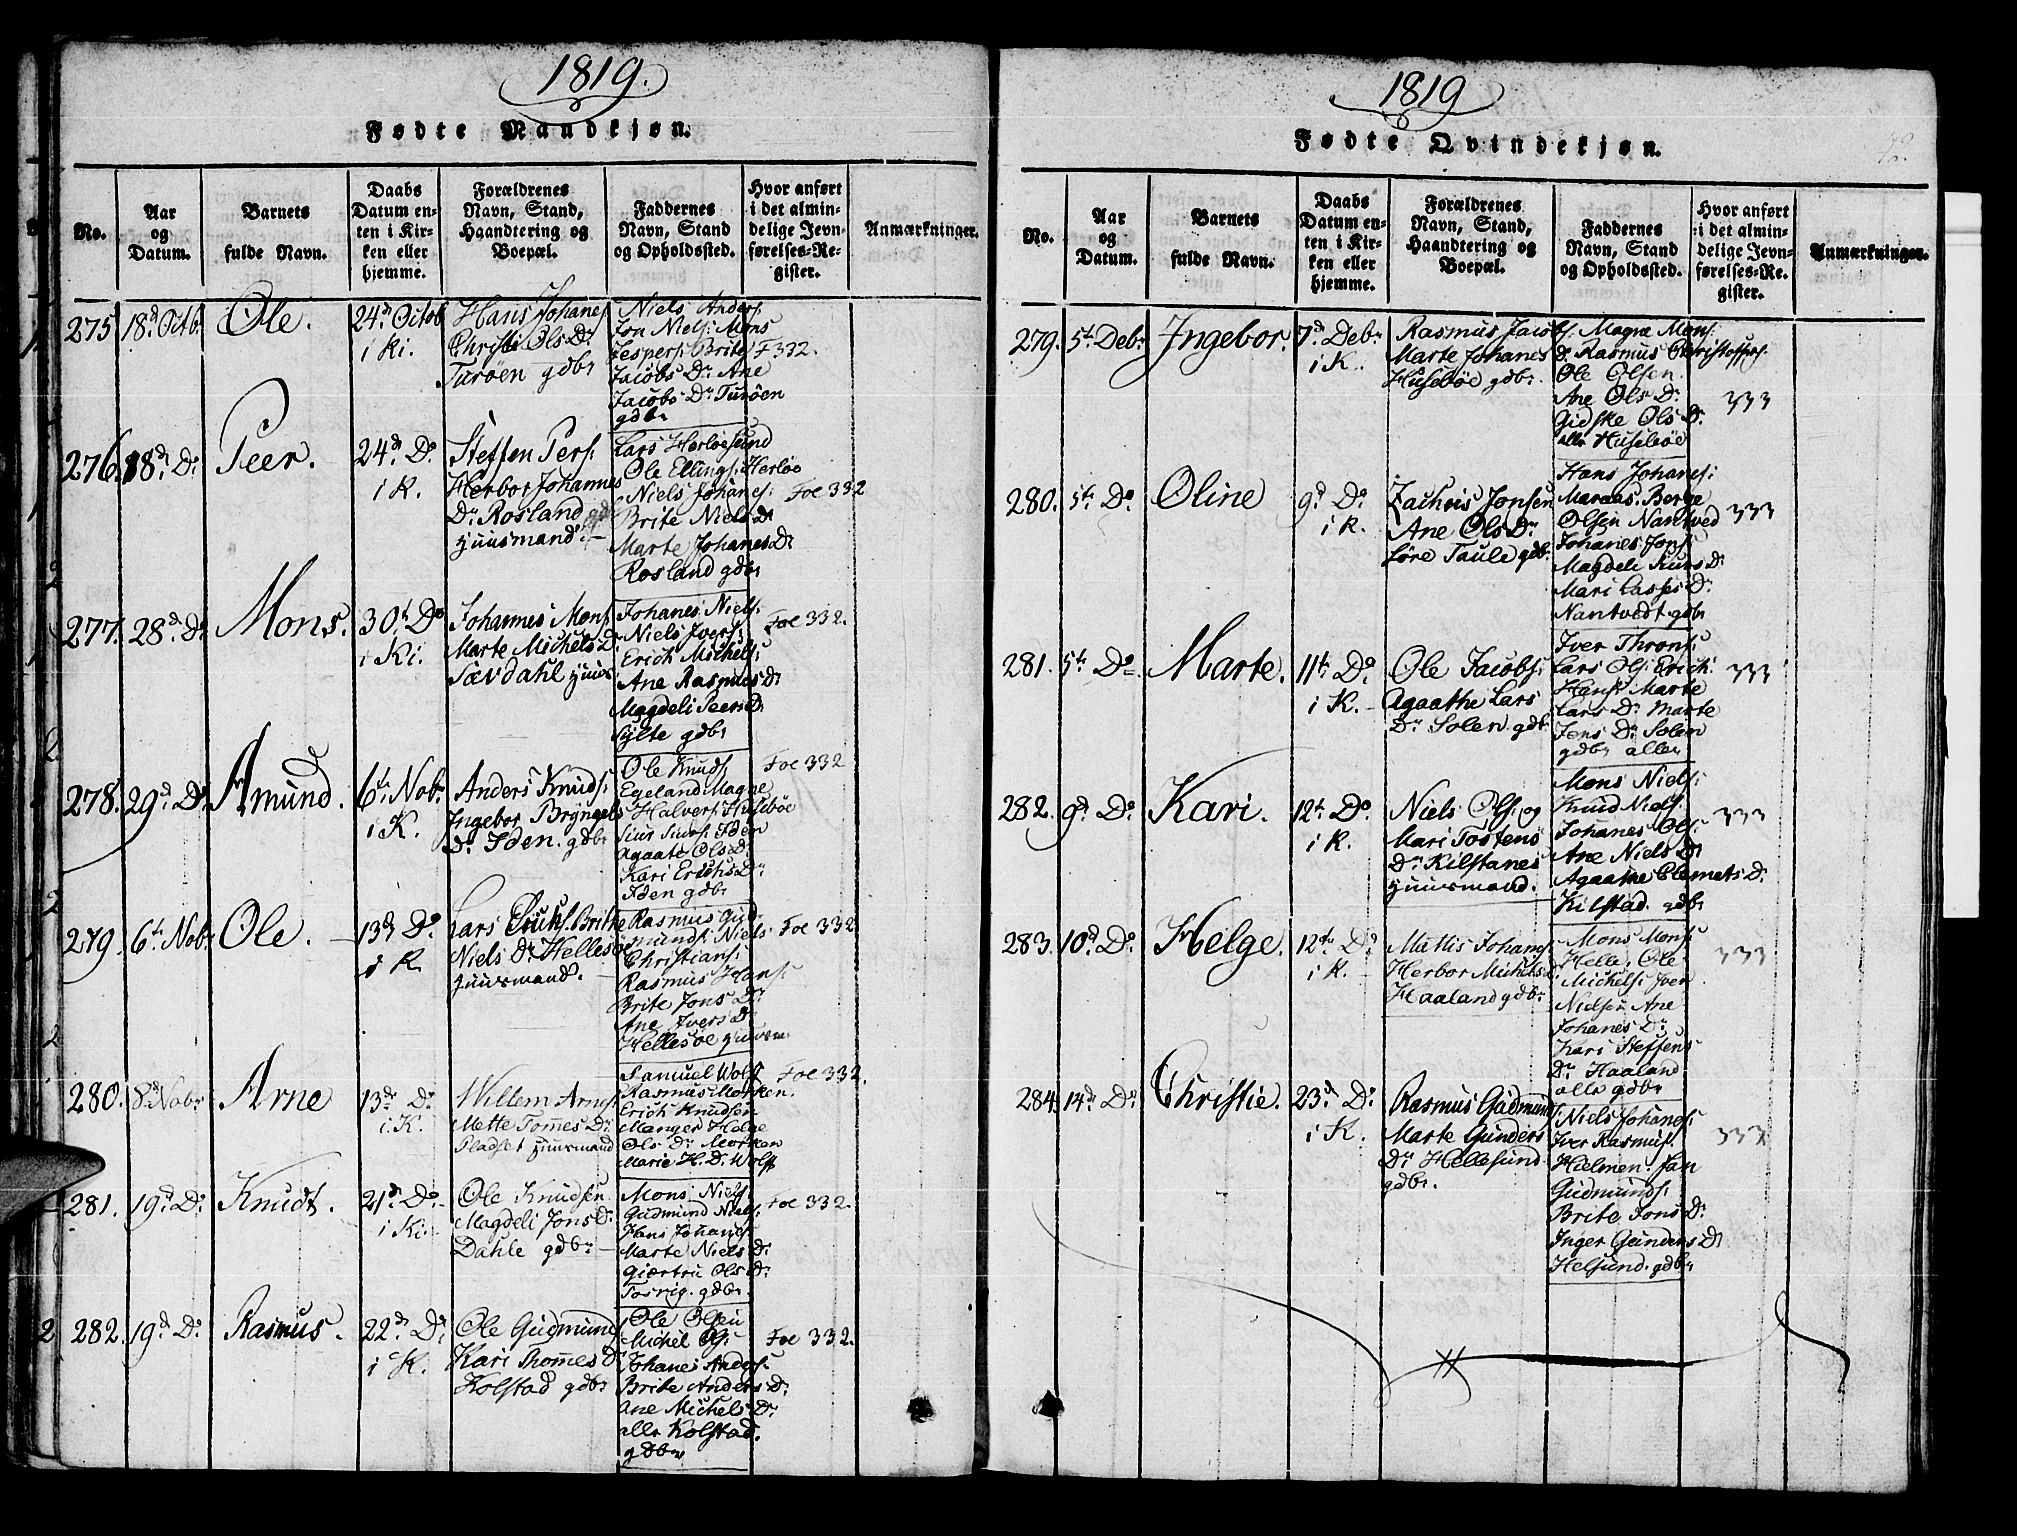 1819.
Fødte Mandkjøn.
No.
Aar
og
Datum.
Barnets
fulde Navn.
Daabs
Datum en-
ten i Kir-
ken eller
hjemme.
Forældrenes
Navn, Stand,
Haandtering og
Boepæl.
Faddernes
Navn, Stand
og Opholdssted.
Hvor anført
i det almin-
delige Jevn-
førelses-Re-
gister.
Anmærkninger.
275
18d. Octbr
Ole.
24d. Octob
i Ki.
Hans Johanes
Christi Ols Dr
Turøen gdbr
Niels Anders:
Jon Niels: Mons
Jespers: Brite
Jacobs Dr Ane
Jacobs Dr Turöen
gdbr
F 332.
276.
18d. Do
Peer.
24d. Do
i K.
Steffen Pers:
Herbor Johannes
Dr. Rosland
Huusmand.
Lars Herløesund
Ole Ellings: Herlöe
Niels Johanes:
Brite Niels Dr
Marte Johanes Dr
Rosland gdbr
Foe 332
277.
28d. Do
Mons.
30t. Do
i Ki.
Johannes Mons:
Marte Michels D.
Sævdahl Huus
Johanes Niels:
Niels Ivers:
Erich Michels:
Ane Rasmus Dr
Magdeli Peers Dr
Sylte gdbr
Foe 332.
278.
29d. Do
Amund.
6t. Nobr
i K.
Anders Knuds:
Ingebor Bryngels
Dr Iden. gdbr
Ole Knuds:
Egeland Magne
Halvers: Husebøe
Siur Siurs: Iden
Agaate Ols Dr
Kari Erichs Dr
Iden gdbr
Foe 332
279.
6t. Nobr
Ole.
13d. Do
i K
Lars Erichs. Brithe
Niels Dr Hellesøe
Huusmand.
Rasmus Gud
munds: Niels
Christians:
Rasmus Hans:
Brite Jons Dr
Ane Ivers Dr
Hellesøe Huusm
Foe 332
280.
8d Nobr
Arne
13d. Do
i K.
Willem Arnes
Mette Tomes Dr
Pladset Huusmand
Samuel Wolff
Rasmus Morken.
Erich Knudsen
Manger Helge
Ols Dr Morken
Marie H. D. Wolff
Foe 332.
281.
19d. Do
Knudt.
21d. Do
i Ki.
Ole Knudsen
Magdeli Jons Dr
Dahle gdbr
Mons Niels:
Gudmund Niels:
Hans Johanes
Marte Niels Dr
Giertru Ols Dr
Tosvig. gdbr
Foe 332.
282.
19d. Do
Rasmus.
22d. Do
i K.
Ole Gudmund
Kari Thomes Dr
Kolstad gdbr
Ole Olsen
Michel Ols:
Johanes Anders:
Brite Anders Dr
Ane Michels Dr
alle Kolstad.
gdbr
Foe 332.
1819
Fødte Qvindekjøn.
No.
Aar
og
Datum.
Barnets
fulde Navn.
Daabs
Datum en-
ten i Kir-
ken eller
hjemme.
Forældrenes
Navn, Stand,
Haandtering og
Boepæl.
Faddernes
Navn, Stand
og Opholdssted.
Hvor anført
i det almin-
delige Jevn-
førelses-Re-
gister.
Anmærkninger.
279.
5t Debr
Ingebor.
7d Debr
i K.
Rasmus Jacobs:
Marte Johanes Dr
Husebøe gdbr
Magne Mons:
Rasmus Christoffers.
Ole Olsen.
Ane Ols Dr
Gidske Ols Dr
alle Husebøe
333
280.
5t. Do
Oline
9d. Do
i K.
Zachris Jonsen
Ane Ols Dr
Løre Taule gdbr
Hans Johanes:
Maraas. Berge
Olsen Nantved
Johanes Jons:
Magdeli Knus Dr
Mari Lasses Dr
Nantvedt gdbr
333
281.
5t. Do
Marte.
11t. Do
i K.
Ole Jacobs:
Agaathe Lars
Dr Solen gdbr
Iver Throns:
Lars Ols: Erich
Hans: Marte
Lars Dr Marte
Jens Dr Solen
gdbr alle
333
282.
9d. Do
Kari.
12t. Do
i K.
Niels Ols: og
Mari Tostens
Dr Kilstanes
Huusmand.
Mons Niels:
Knud Niels:
Johanes Ols:
Ane Niels Dr
Agaathe Clemets Dr
Kilstad gdbr
333
283.
10d. Do
Helge.
12t. Do
i K.
Mattis Johanes
Herbor Michels Dr
Haaland gdbr
Mons Mons:
Helle: Ole
Michels: Iver
Nielsen Ane
Johanes Dr
Kari Steffens
Dr Haaland
alle gdbr
333
284.
14d. Do
Christie.
23d. Do
i K.
Rasmus Gudmunds:
Marte Gunders
Dr Hellesund
gdbr.
Niels Johanes:
Iver Rasmus:
Hielmen. Jan
Gudmunds:
Brite Jons Dr
Inger Gunders Dr
Helsund. gdbr
333